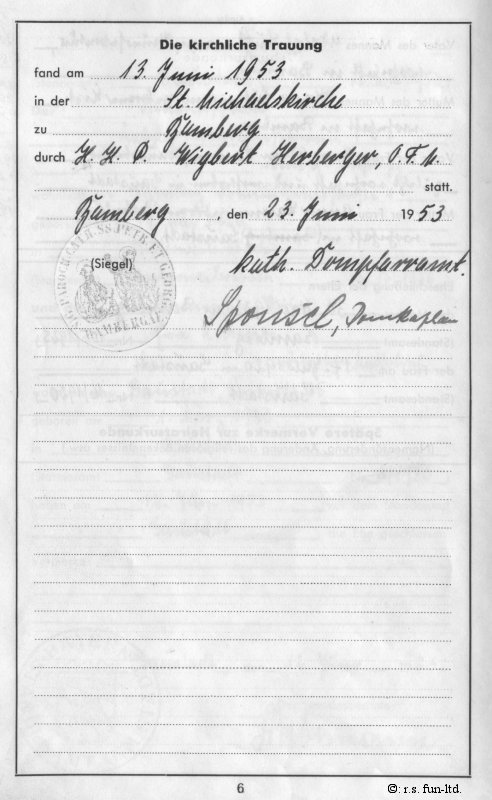 Die kirchliche Trauung
fand am 13. Juni 1953
in der St. Michaelskirche
zu Bamberg
durch H. H. P. Wigbert Herberger, O.F.M.
statt.
Bamberg, den 23. Juni 1953
(Siegel) kath. Dompfarramt.
BAMBERGAE
Sponsel, Domkaplan
6
©: r.s. fun-ltd.